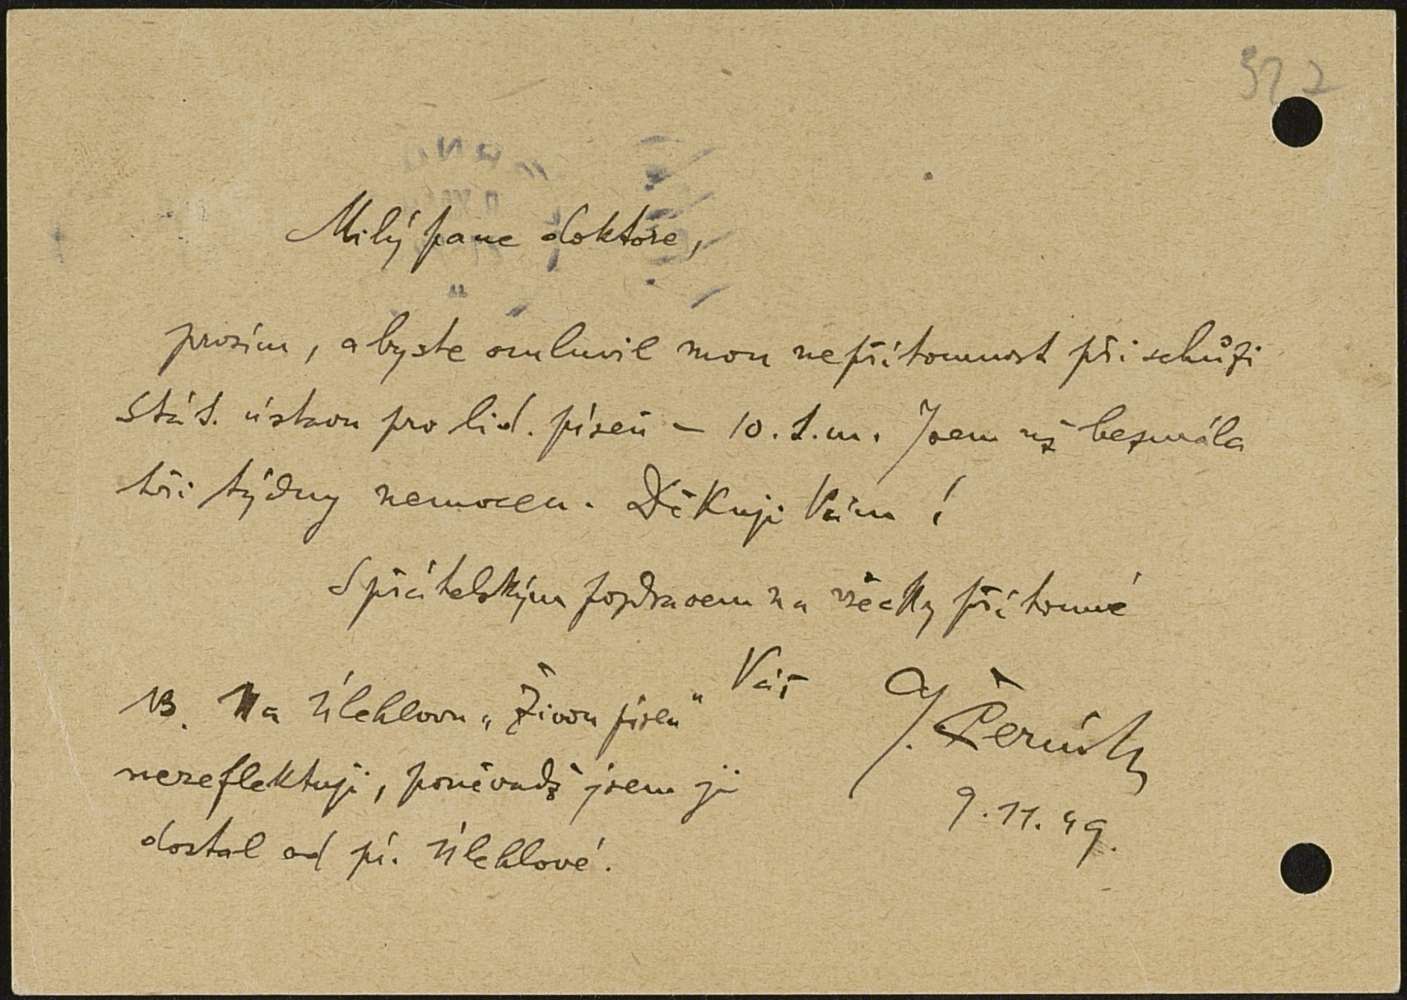 322
Milý pane doktore,
prosím, abyste omluvil mou nepřítomnost při schůzi
Stát. ústavu pro lid. píseň – 10. t. m. Jsem už bezmála
tři týdny nemocen. Děkuji Vám!
S přátelským pozdravem na všecky přítomné
Váš
J. Černík
9. 11. 49.
NB. Na Úlehlovu „Živou píseň“
nereflektuji, poněvadž jsem ji
dostal od pí. Úlehlové.